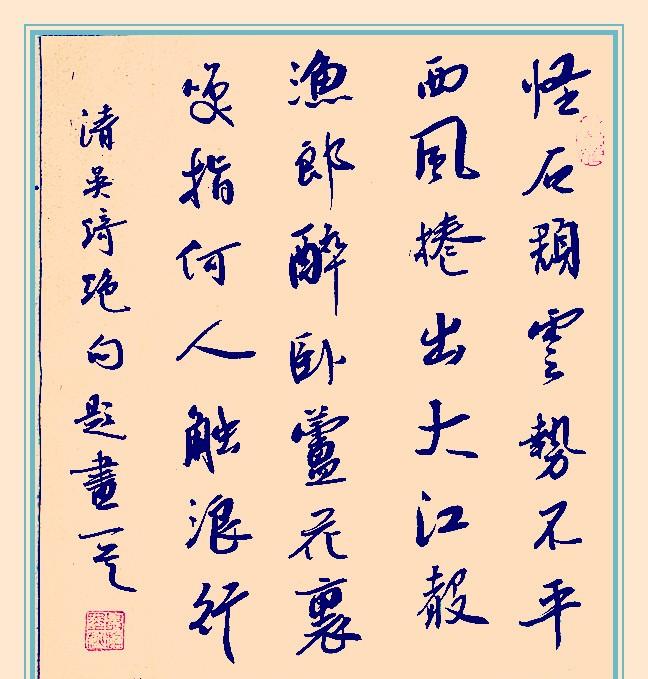 怪石頹雲勢不平
西風捲出大江聲
漁郎醉臥蘆花裏
笑指何人觸浪行
清吳綺絕句題畫一首